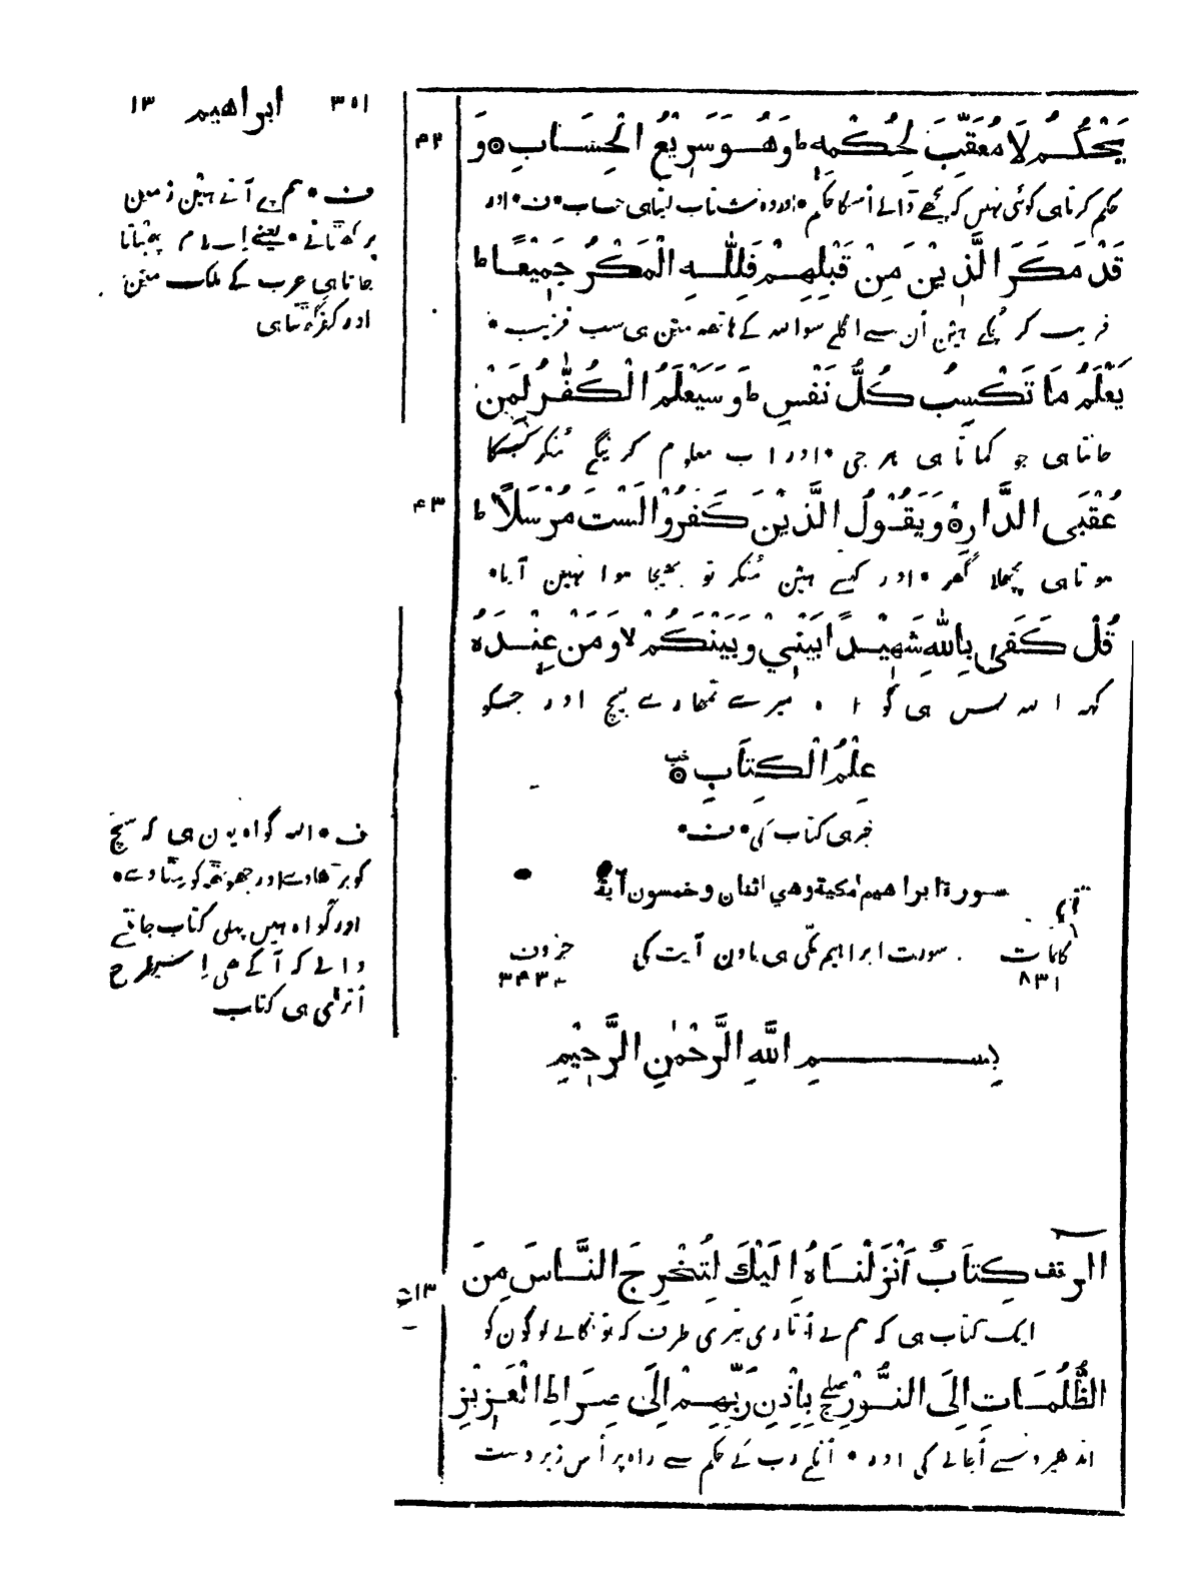 ۳۵۱ ابراهيم ۱۳
يَحْكُمُ لَا مُعَقِّبَ لِحُكْمِهِ ط وَهُوَ سَرِيْعُ الْحِسَابِ ۞ وَ
۴۲
حکم کرتا ہی کوئی نہیں کہ پیچھے ڈالے اُسکا حکم • اور وہ شتاب لیتا ہی حساب • ف • اور
قَدْ مَكَرَ الَّذِيْنَ مِنْ قَبْلِهِمْ فَلِلّٰهِ الْمَكْرُ جَمِيْعًا ط
فریب کر چُکے ہین اُن سے اگلے سو اللہ کے ہاتھ مین ہی سب فریب •
يَعْلَمُ مَا تَكْسِبُ كُلُّ نَفْسٍ ط وَ سَيَعْلَمُ الْكُفّٰرُ لِمَنْ
جانتا ہی جو کماتا ہی ہر جی • اور اب معلوم کرینگے مُنکر کسکا
عُقْبَى الدَّارِ ۞ وَيَقُوْلُ الَّذِيْنَ كَفَرُوْا لَسْتَ مُرْسَلًا ط
۴۳
ہوتا ہی پچھلا گھر • اور کہتے ہین مُنکر تو بھیجا ہوا نہین آیا •
قُلْ كَفٰى بِاللّٰهِ شَهِيْدًا بَيْنِيْ وَبَيْنَكُمْ لا وَمَنْ عِنْدَهٗ
کہہ اللہ بس ہی گواہ میرے تمھارے بیچ اور جسکو
عِلْمُ الْكِتَابِ ۞
خبر ہی کتاب کی • ف •
ف • ہم چلے آتے ہین زمین
پر گھٹاتے • یعنے اسلام پھیلتا
جاتا ہی عرب کے ملک مین
اور کفر گھٹتا ہی
ف • اللہ گواہ یون ہی کہ سچ
کو بڑھاوے اور جھوٹھہ کو مٹاوے •
اور گواہ ہیں پہلی کتاب جاننے
والے کہ آگے بھی اِسیطرح
اُتری ہی کتاب
سورة ابراهيم مكية وهي اثنان وخمسون آية
کلمات ۸۳۱
سورت ابراہیم مکّی ہی باون آیت کی
حروف ۳۴۳۴
بِسْمِ اللّٰهِ الرَّحْمٰنِ الرَّحِيْمِ
الٓر قف كِتَابٌ اَنْزَلْنَاهُ اِلَيْكَ لِتُخْرِجَ النَّاسَ مِنَ
۱۳
ایک کتاب ہی کہ ہم نے اُتاری تیری طرف کہ تو نکالے لوگون کو
الظُّلُمَاتِ اِلَى النُّوْرِ بِاِذْنِ رَبِّهِمْ اِلٰى صِرَاطِ الْعَزِيْزِ
اندھیرونسے اُجالے کی اور • اُنکے رب کے حکم سے راہ پر اُس زبردست